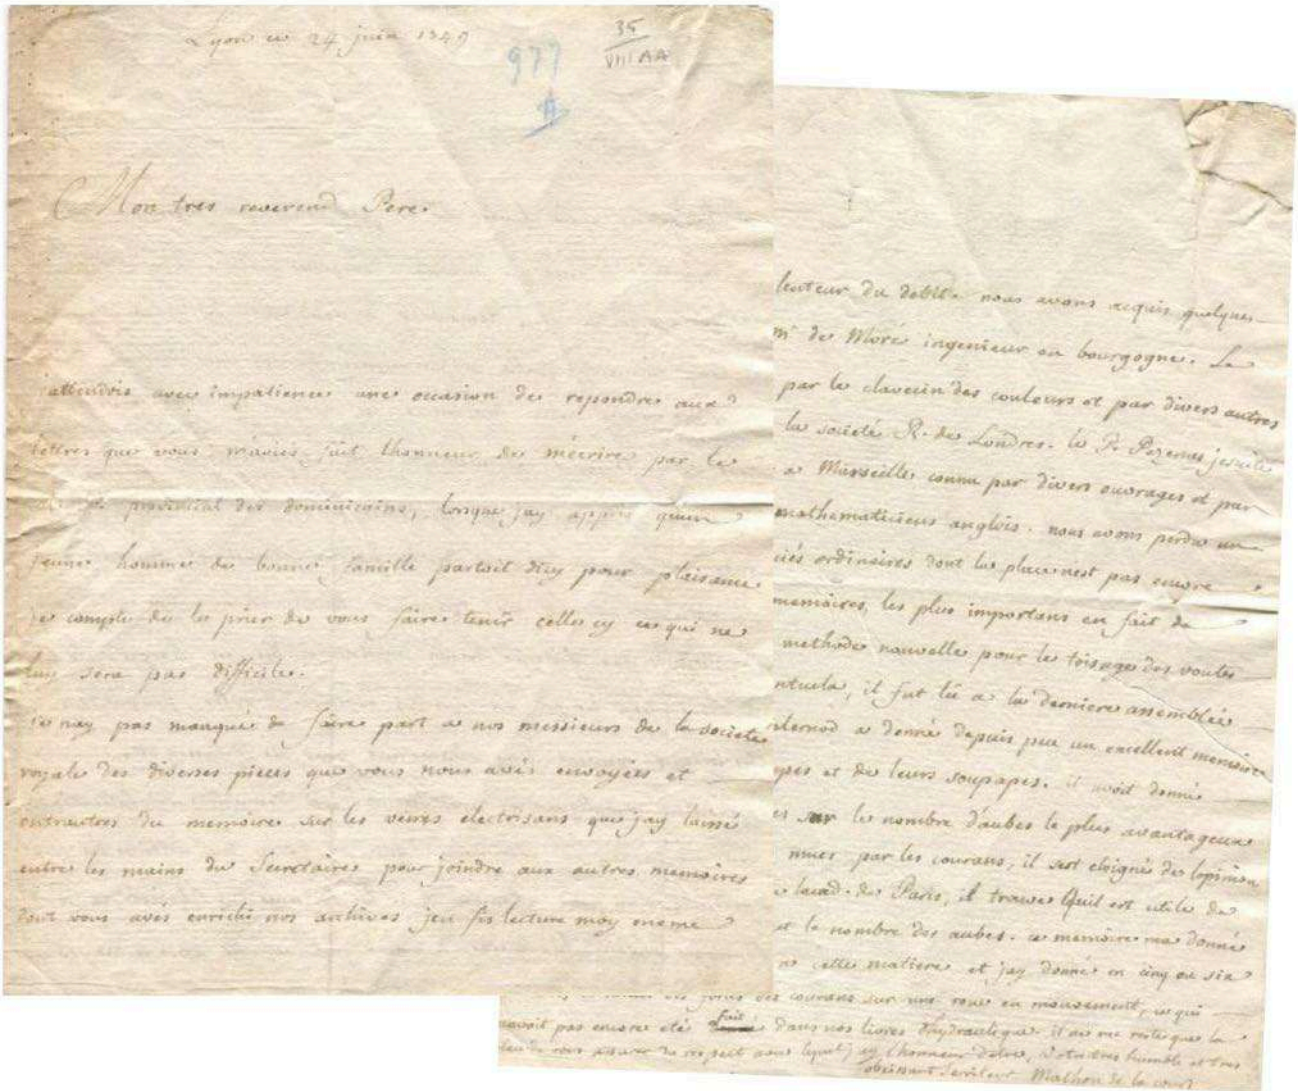 Lyon ce 24 juin 1749
977
35
VIII AA
Mon tres reverend Pere.
attendois avec impatience une occasion de repondre aux
lettres que vous m'aviés fait lhonneur de mécrire par le
provincial des dominicains, lorsque jay appris quun
jeune homme de bonne famille partoit dicy pour plaisance
je compte de le prier de vous faire tenir celle cy ce qui ne
luy sera pas difficile.
je nay pas manqué de faire part a nos messieurs de la societé
royale des diverses pieces que vous nous avés envoyées et
entrautres du memoire sur les verres électrisans que jay laissé
entre les mains du Secretaire pour joindre aux autres memoires
dont vous avés enrichi nos archives jen fis lecture moy meme
lenteur du debit. nous avons acquis quelques
de Moré ingenieur en bourgogne. Le
par le clavecin des couleurs et par divers autres
la societé R. de Londres. le P. Pezenas jesuite
a Marseille connu par divers ouvrages et par
mathematiciens anglois. nous avons perdu un
ciés ordinaires dont la place nest pas encore
memoires, les plus importans en fait de
methode nouvelle pour le toisage des voutes
ntucla, il fut lû a la derniere assemblée
a donné depuis peu un excellent memoire
pes et de leurs soupapes. il avoit donné
sur le nombre daubes le plus avantageux
mues par les courans, il sest eloigné de lopinion
lacad. de Paris, il trouve quil est utile de
le nombre des aubes. ce memoire ma donné
cette matiere et jay donné en cinq ou six
des courans sur une roue en mouvement, ce qui
navoit pas encore eté fait dans nos livres dhydraulique. il ne me reste que la
de vous assurer du respect avec lequel jay lhonneur detre, Votre tres humble et tres
obeissant Serviteur Mathon de la